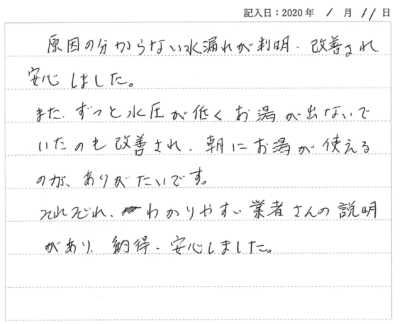 記入日：2020年 1月 11日
原因の分からない水漏れが判明、改善され
安心しました。
また、ずっと水圧が低くお湯が出ないで
いたのも改善され、朝にお湯が使える
のが、ありがたいです。
それぞれ、わかりやすい業者さんの説明
があり、納得・安心しました。